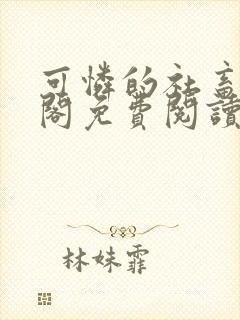 可憐的社畜
閣免費閱讀
林妹霏